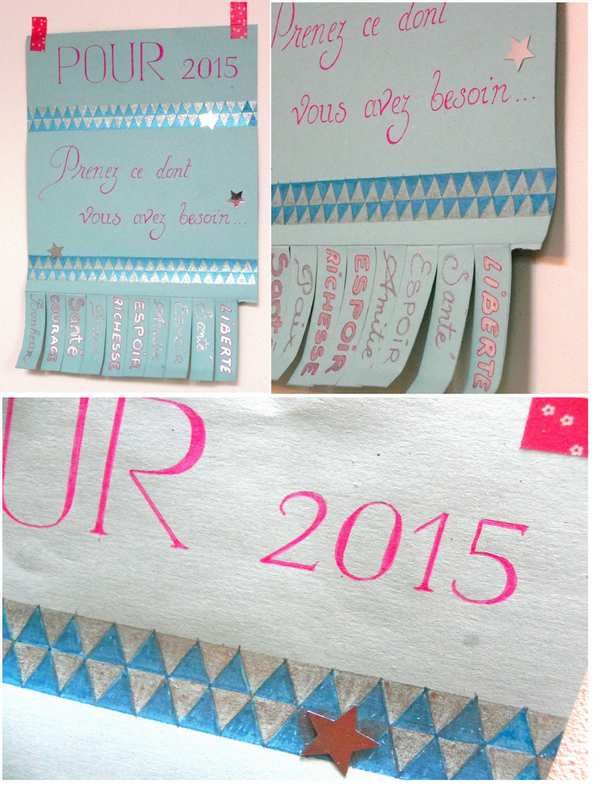 POUR 2015
Prenez ce dont
vous avez besoin...
Bonheur
COURAGE
Santé
Paix
RICHESSE
ESPOIR
Amitié
ESPOIR
Santé
LIBERTE
Prenez ce dont
vous avez besoin...
Santé
Paix
RICHESSE
ESPOIR
Amitié
ESPOIR
Santé
LIBERTE
UR 2015